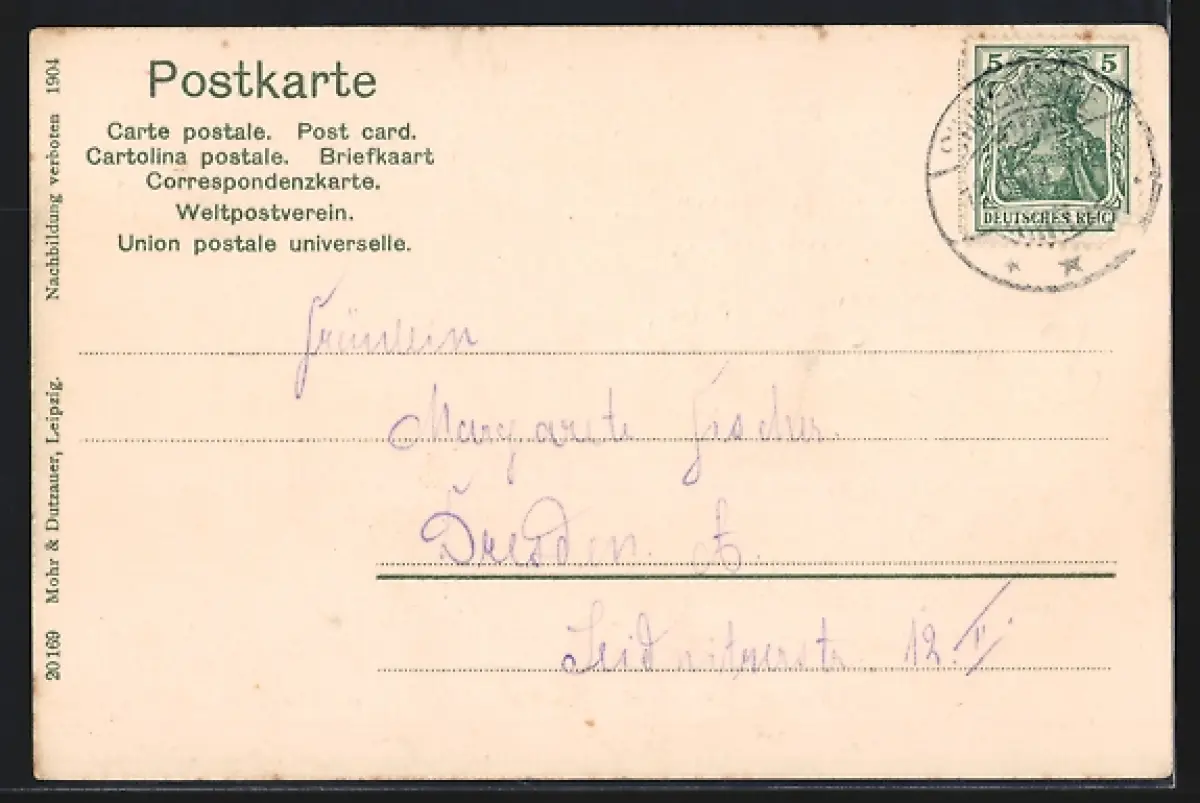 Postkarte
Carte postale. Post card.
Cartolina postale. Briefkaart
Correspondenzkarte.
Weltpostverein.
Union postale universelle.
5 5
DEUTSCHES REICH
Fräulein
Margarete Fischer.
Dresden. A.
Seidnitzerstr. 12. II.
Nachbildung verboten 1904
20169 Mohr & Dutzauer, Leipzig.